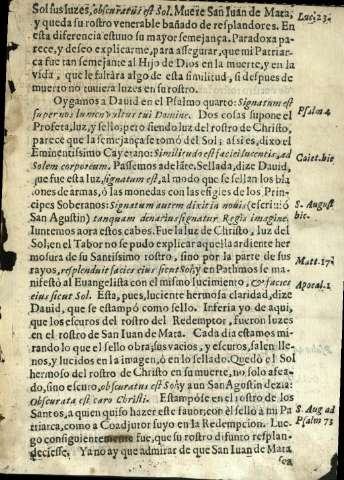 Sol sus luzes, obscuratus est Sol. Muere San Iuan de Mata,
y queda su rostro venerable bañado de resplandores. En
esta diferencia estuuo su mayor semejança. Paradoxa pa-
rece, y deseo explicarme, para assegurar, que mi Patriar-
ca fue tan semejante al Hijo de Dios en la muerte, y en la
vida, que le faltàra algo de esta similitud, si despues de
muerto no tuuiera luzes en su rostro.
Oygamos a Dauid en el Psalmo quarto: Signatum est
super nos lumen vultus tui Domine. Dos cosas supone el
Profeta, luz, y sello; pero siendo luz del rostro de Christo,
parece que la semejança se tomò del Sol; assi es, dixo el
Eminentissimo Cayetano: Similitudo est faciei lucentis, ad
Solem corporeum. Passemos adelãte. Sellada, dize Dauid,
que fue esta luz, signatum est, al modo que se sellan los bla
sones de armas, ò las monedas con las efigies de los Prin-
cipes Soberanos: Signatum autem dixit in nobis (escriuiò
San Agustin) tanquam denarius signatur Regis imagine.
Iuntemos aora estos cabos. Fue la luz de Christo, luz del
Sol; en el Tabor no se pudo explicar aquella ardiente her
mosura de su Santissimo rostro, sino por la parte de sus
rayos, resplenduit facies eius sicut Sol; y en Pathmos se ma-
nifestò al Euangelista con el mismo lucimiento, & facies
eius sicut Sol. Esta, pues, luciente hermosa claridad, dize
Dauid, que se estampò como sello. Inferia yo de aqui,
que los escuros del rostro del Redemptor, fueron luzes
en el rostro de San Iuan de Mata. Cada dia estamos mi-
rando lo que el sello obra; sus vacios, y escuros, salen lle-
nos, y lucidos en la imagen, ò en lo sellado. Quedò el Sol
hermoso del rostro de Christo en su muerte, no solo afea-
do, sino escuro, obscuratus est Sol; y aun San Agustin dezia:
Obscurata est caro Christi. Estampòse en el rostro de los
Santos, a quien quiso hazer este fauor; con èl sellò a mi Pa
triarca, como a Coadjutor suyo en la Redempcion. Lue-
go consiguientemente fue, que su rostro difunto resplan-
deciesse. Ya no ay que admirar de que San Iuan de Mata
sea
Luc. 23.
Psalm. 4
Caiet. hic
S. August
hic.
Matt. 17.
Apocal. 1
S. Aug. ad
Psalm. 73